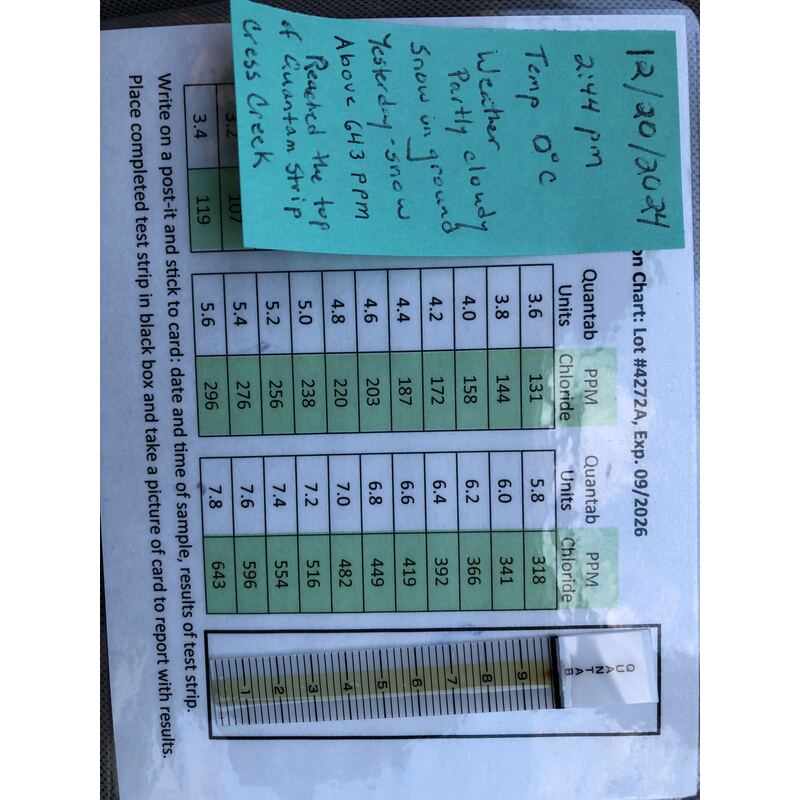 12/20/2024
2:44 pm
Temp 0°C
Weather
Partly cloudy
Snow on ground
Yesterday - snow
Above 643 ppm
Reached the top
of Quantam Strip
Cress Creek
on Chart: Lot #4272A, Exp. 09/2026
3.2 107
3.4 119
Quantab Units PPM Chloride
3.6 131
3.8 144
4.0 158
4.2 172
4.4 187
4.6 203
4.8 220
5.0 238
5.2 256
5.4 276
5.6 296
Quantab Units PPM Chloride
5.8 318
6.0 341
6.2 366
6.4 392
6.6 419
6.8 449
7.0 482
7.2 516
7.4 554
7.6 596
7.8 643
QUANTAB
9
8
7
6
5
4
3
2
1
Write on a post-it and stick to card: date and time of sample, results of test strip.
Place completed test strip in black box and take a picture of card to report with results.